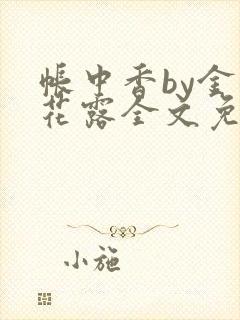 帐中香by金
花露全文免
小施